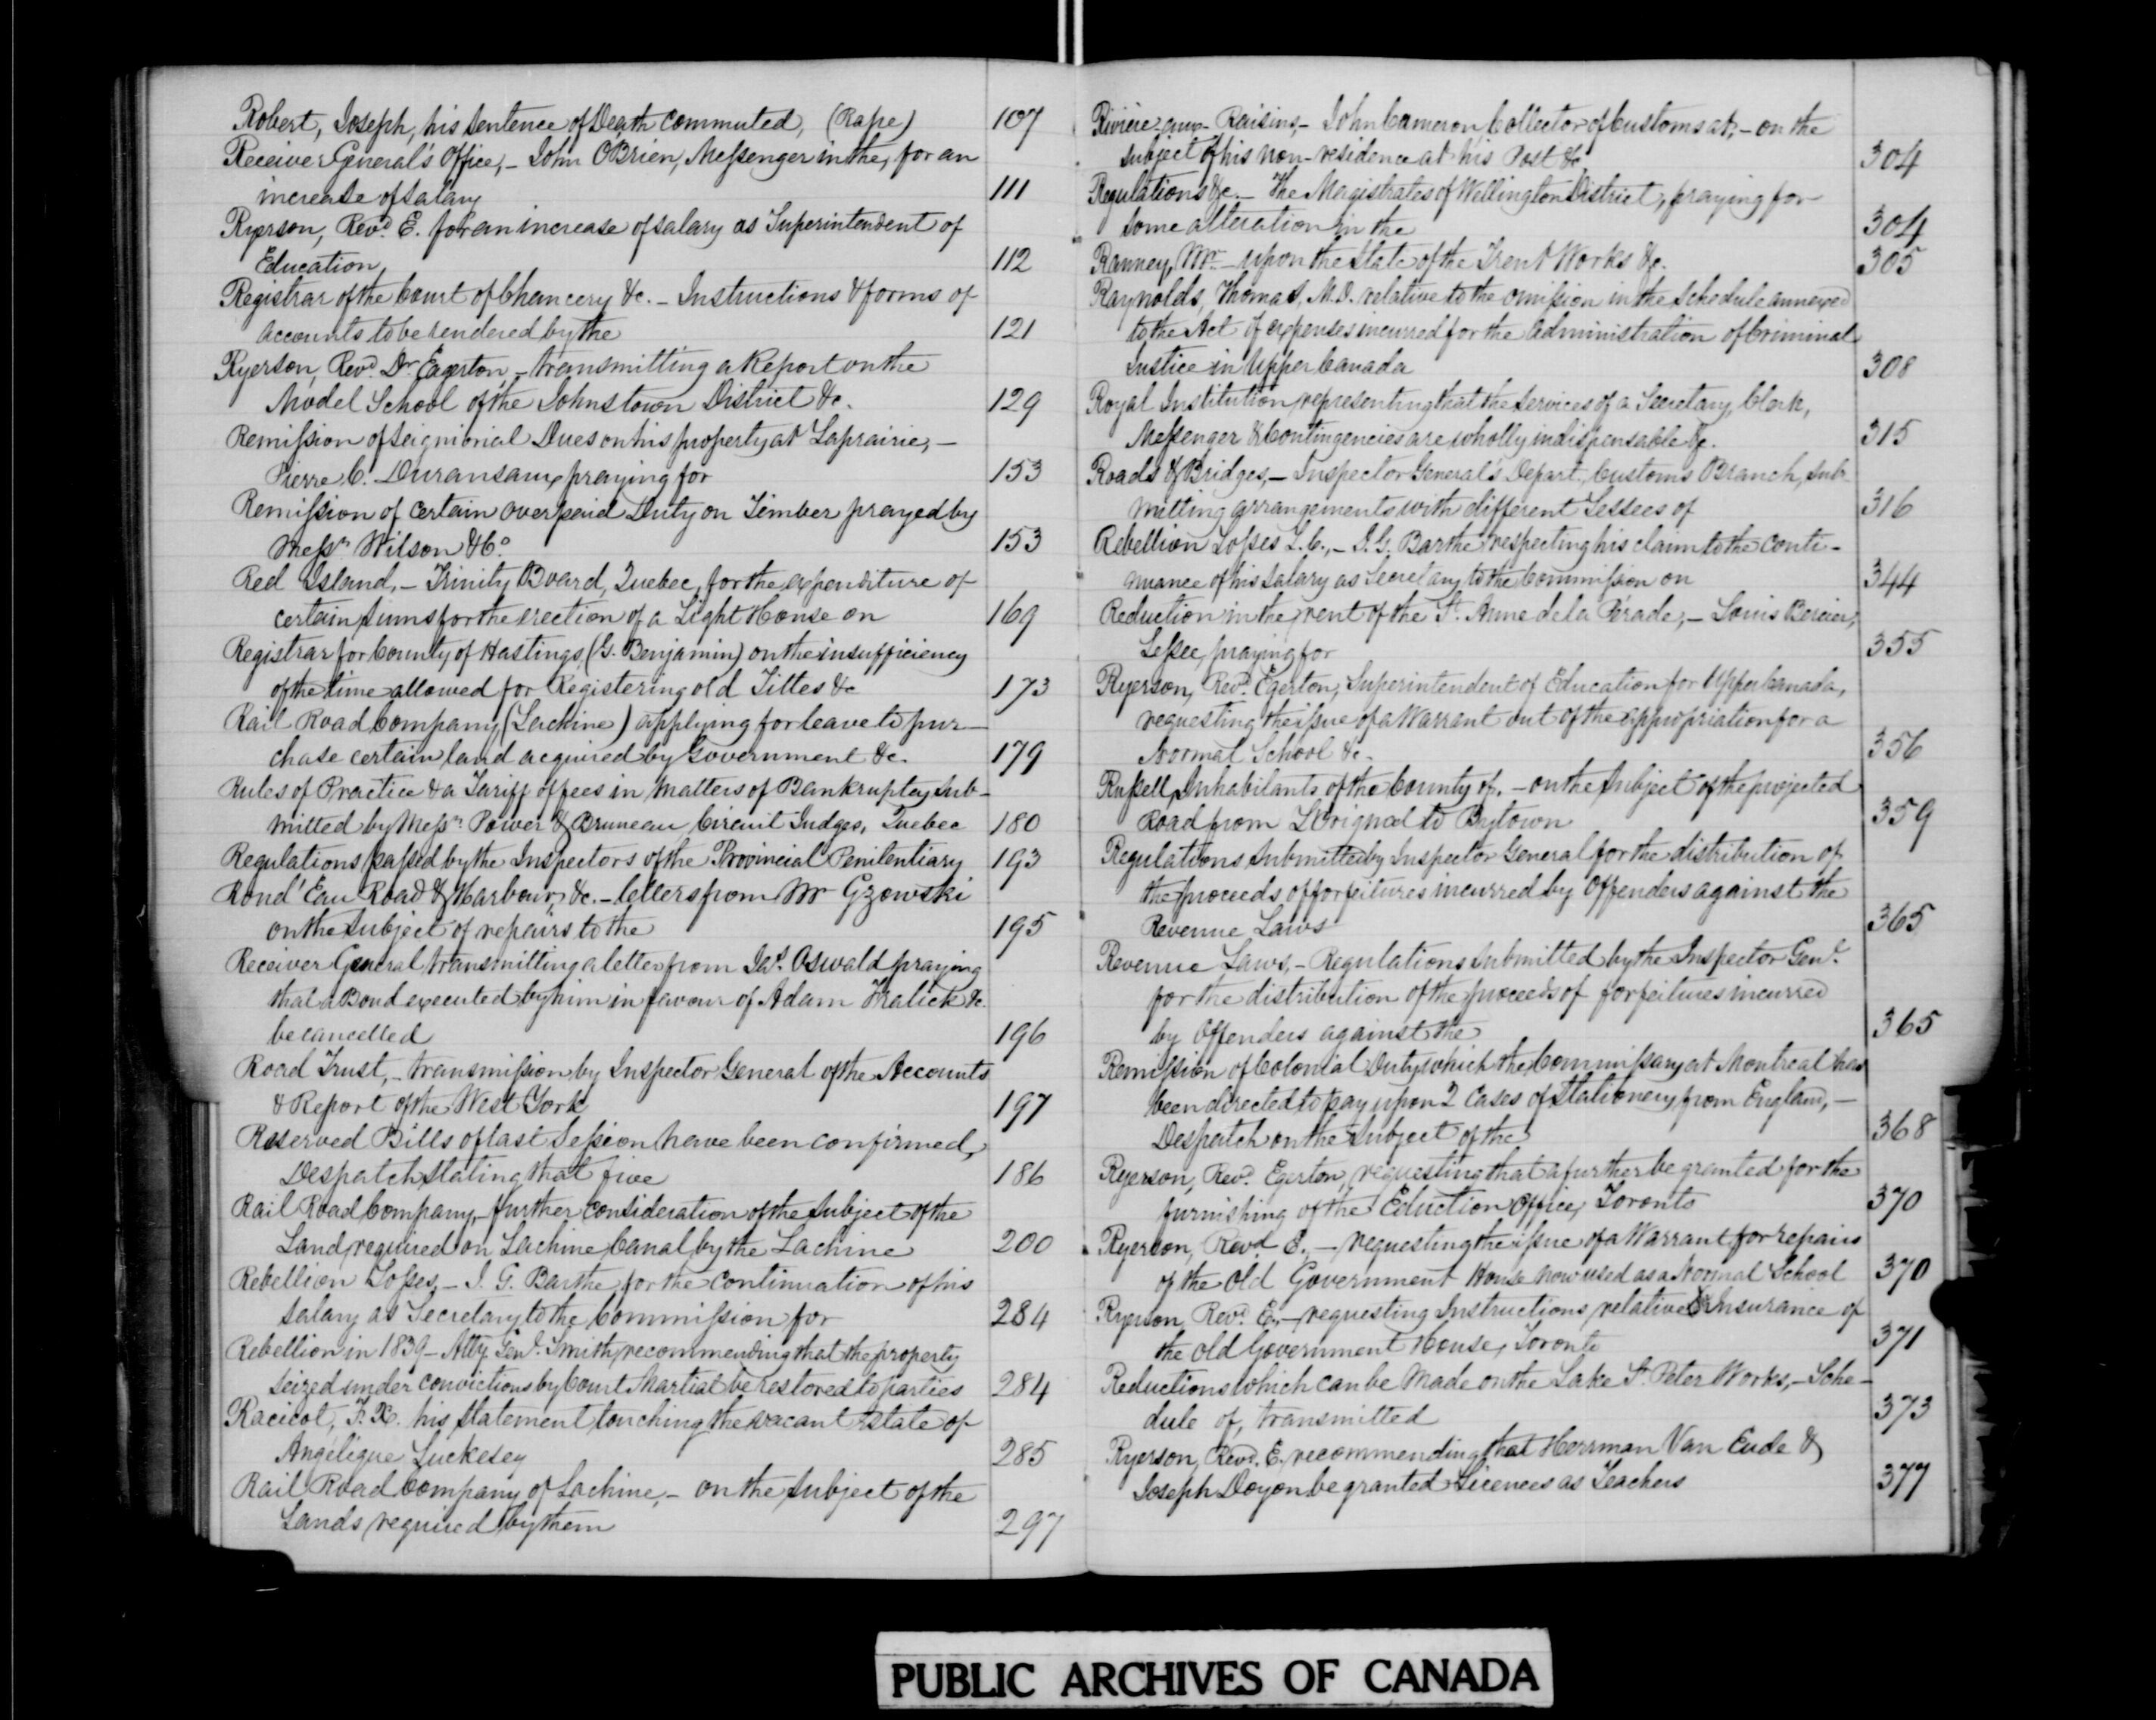 Robert, Joseph, his sentence of Death commuted, (Rape) 107
Receiver General's Office, – John OBrien, Messenger in the, for an
increase of salary 111
Ryerson, Revd. E. for an increase of salary as Superintendent of
Education, 112
Registrar of the Court of Chancery &c. – Instructions & forms of
accounts to be rendered by the 121
Ryerson, Revd. Dr. Egerton, – transmitting a Report on the
Model School of the Johnstown District &c. 129
Remission of Seigniorial Dues on his property at Laprairie, –
Pierre C. Duransaux, praying for 153
Remission of certain overpaid Duty on Timber prayed by
Messrs Wilson & Co. 153
Red Island, – Trinity Board, Quebec, for the expenditure of
certain sums for the erection of a Light House on 169
Registrar for County of Hastings, (G. Benjamin) on the insufficiency
of the time allowed for Registering old Titles &c 173
Rail Road Company (Lachine) applying for leave to pur–
chase certain land acquired by Government &c. 179
Rules of Practice & a Tariff of fees in matters of Bankruptcy sub–
mitted by Messrs. Power & Bruneau Circuit Judges, Quebec 180
Regulations passed by the Inspectors of the Provincial Penitentiary 193
Rond' Eau Road & Harbour, &c. – letters from Mr Gzowski
on the subject of repairs to the 195
Receiver General transmitting a letter from Jas. Oswald praying
that a Bond executed by him in favour of Adam Fralick &c.
be cancelled 196
Road Trust, – transmission by Inspector General of the Accounts
& Report of the West York 197
Reserved Bills of last Session have been confirmed,
Despatch stating that five 186
Rail Road Company, – further consideration of the subject of the
Land required on Lachine Canal, by the Lachine 200
Rebellion Losses, – J. G. Barthe for the continuation of his
salary as Secretary to the Commission for 284
Rebellion in 1839 – Atty. Genl. Smith, recommending that the property
seized under convictions by Court Martial be restored to parties 284
Racicot, F. X. his statement touching the vacant estate of
Angélique Luckesey 285
Rail Road Company of Lachine, – on the subject of the
Lands required by them 297
Rivière-aux-Raisins, – John Cameron, Collector of Customs at, – on the
subject of his non-residence at his Post &c 304
Regulations &c. – The Magistrates of Wellington District, praying for
some alteration in the 304
Ranney, Mr. – upon the state of the Trent Works &c. 305
Raynolds, Thomas, M.D. relative to the omission in the Schedule annexed
to the Act of expenses incurred for the administration of Criminal
Justice in Upper Canada 308
Royal Institution, representing that the services of a Secretary, Clerk,
Messenger & Contingencies are wholly indispensable &c. 315
Roads & Bridges, – Inspector General's Depart., Customs Branch, sub–
mitting arrangements with different Lessees of 316
Rebellion Losses L.C., – J. G. Barthe respecting his claim to the conti–
nuance of his salary as Secretary to the Commission on 344
Reduction in the rent of the St. Anne de la Pérade, – Louis Bercier,
Lessee, praying for 355
Ryerson, Revd. Egerton, Superintendent of Education for Upper Canada,
requesting the issue of a Warrant out of the appropriation for a
Normal School &c. 356
Russell, Inhabitants of the County of, – on the subject of the projected
Road from L'Orignal to Bytown 359
Regulations submitted by Inspector General for the distribution of
the proceeds of forfeitures incurred by Offenders against the
Revenue Laws 365
Revenue Laws, – Regulations submitted by the Inspector Genl.
for the distribution of the proceeds of forfeitures incurred
by Offenders against the 365
Remission of Colonial Duty which the Commissary at Montreal has
been directed to pay upon 2 Cases of Stationery from England, –
Despatch on the subject of the 368
Ryerson, Revd. Egerton, requesting that a further be granted for the
furnishing of the Eduction Office, Toronto 370
Ryerson, Revd. E., – requesting the issue of a Warrant for repairs
of the old Government House now used as a Normal School 370
Ryerson, Revd. E., – requesting Instructions relative to Insurance of
the old Government House, Toronto 371
Reductions which can be made on the Lake St. Peter Works, – Sche–
dule of, transmitted 373
Ryerson, Revd. E. recommending that Herrman Van Eude &
Joseph Doyon be granted Licences as Teachers 377
PUBLIC ARCHIVES OF CANADA